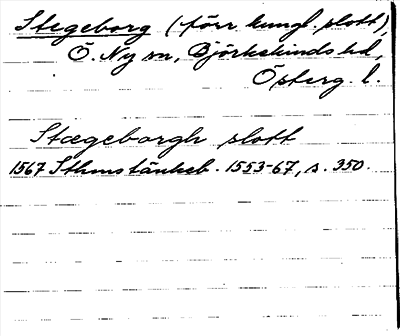 Stegeborg (förr kungl. slott),
Ö. Ny sn, Björkekinds hd,
Österg. l.
Stægeborgh slott
1567 Sthms tänkeb. 1553-67, s. 350.